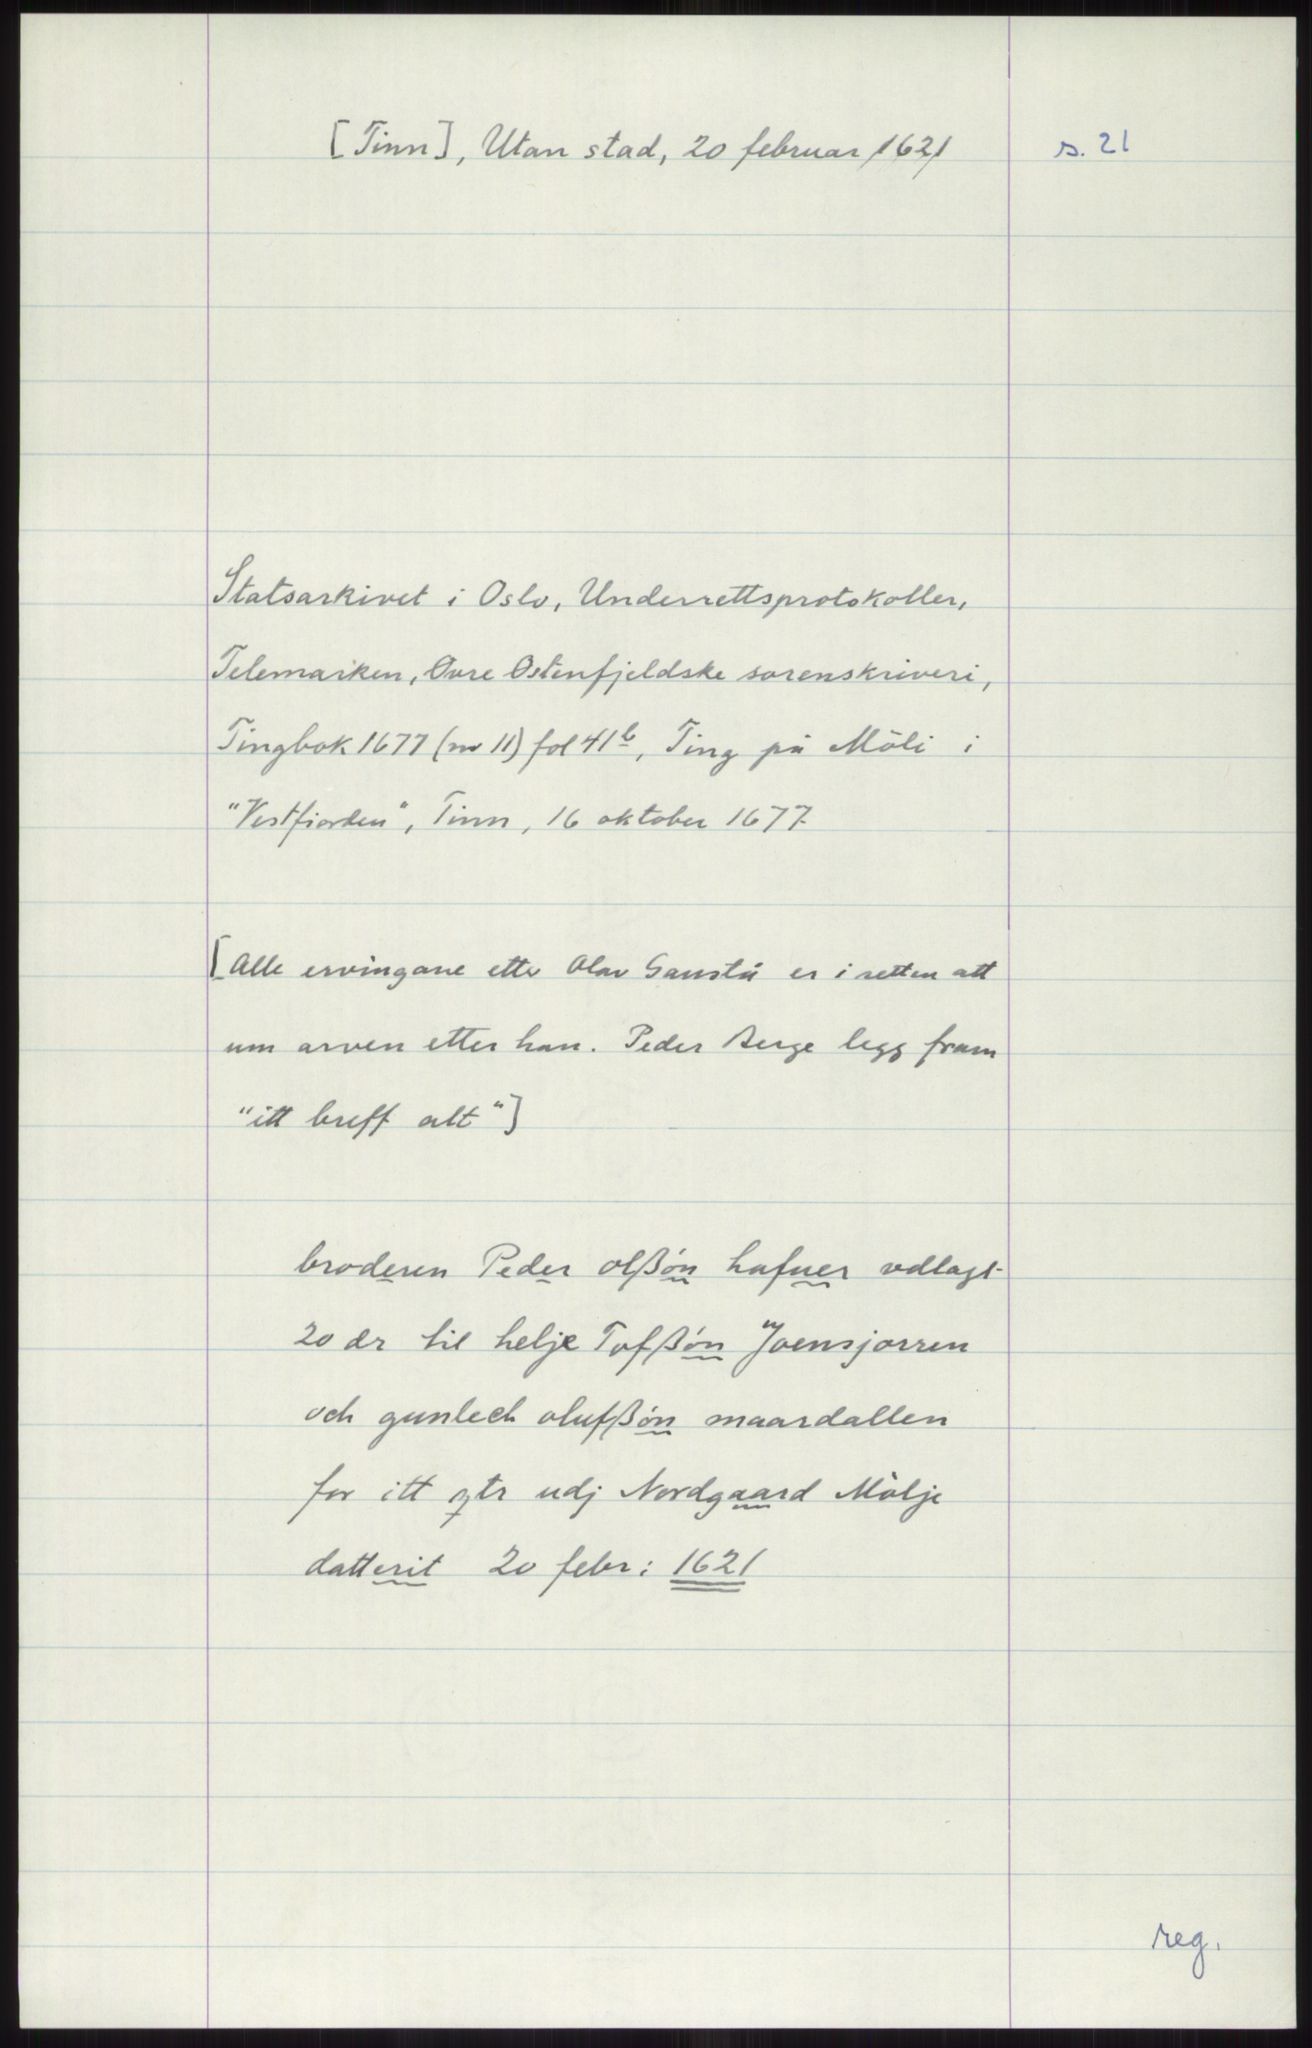 [Tinn], Utan stad, 20 februar 1621 s. 21
Statsarkivet i Oslo, Underrettsprotokoller,
Telemarken, Øvre Østenfjeldske sorenskriveri,
Tingbok 1677 (nr 11) fol 41b, Ting på Mæli i
"Vestfiorden", Tinn, 16 oktober 1677.
[Alle ervingane etter Olav Gaustå er i retten att
um arven etter han. Peder Berge legg fram
"itt breff alt"]
broderen Peder olßøn hafuer vdlagt
20 dr til helje Tofßøn Joensjorren
och gunlech olufßøn maardallen
for itt qtr udj Nordgaard Mølje
datterit 20 febr: 1621
reg.